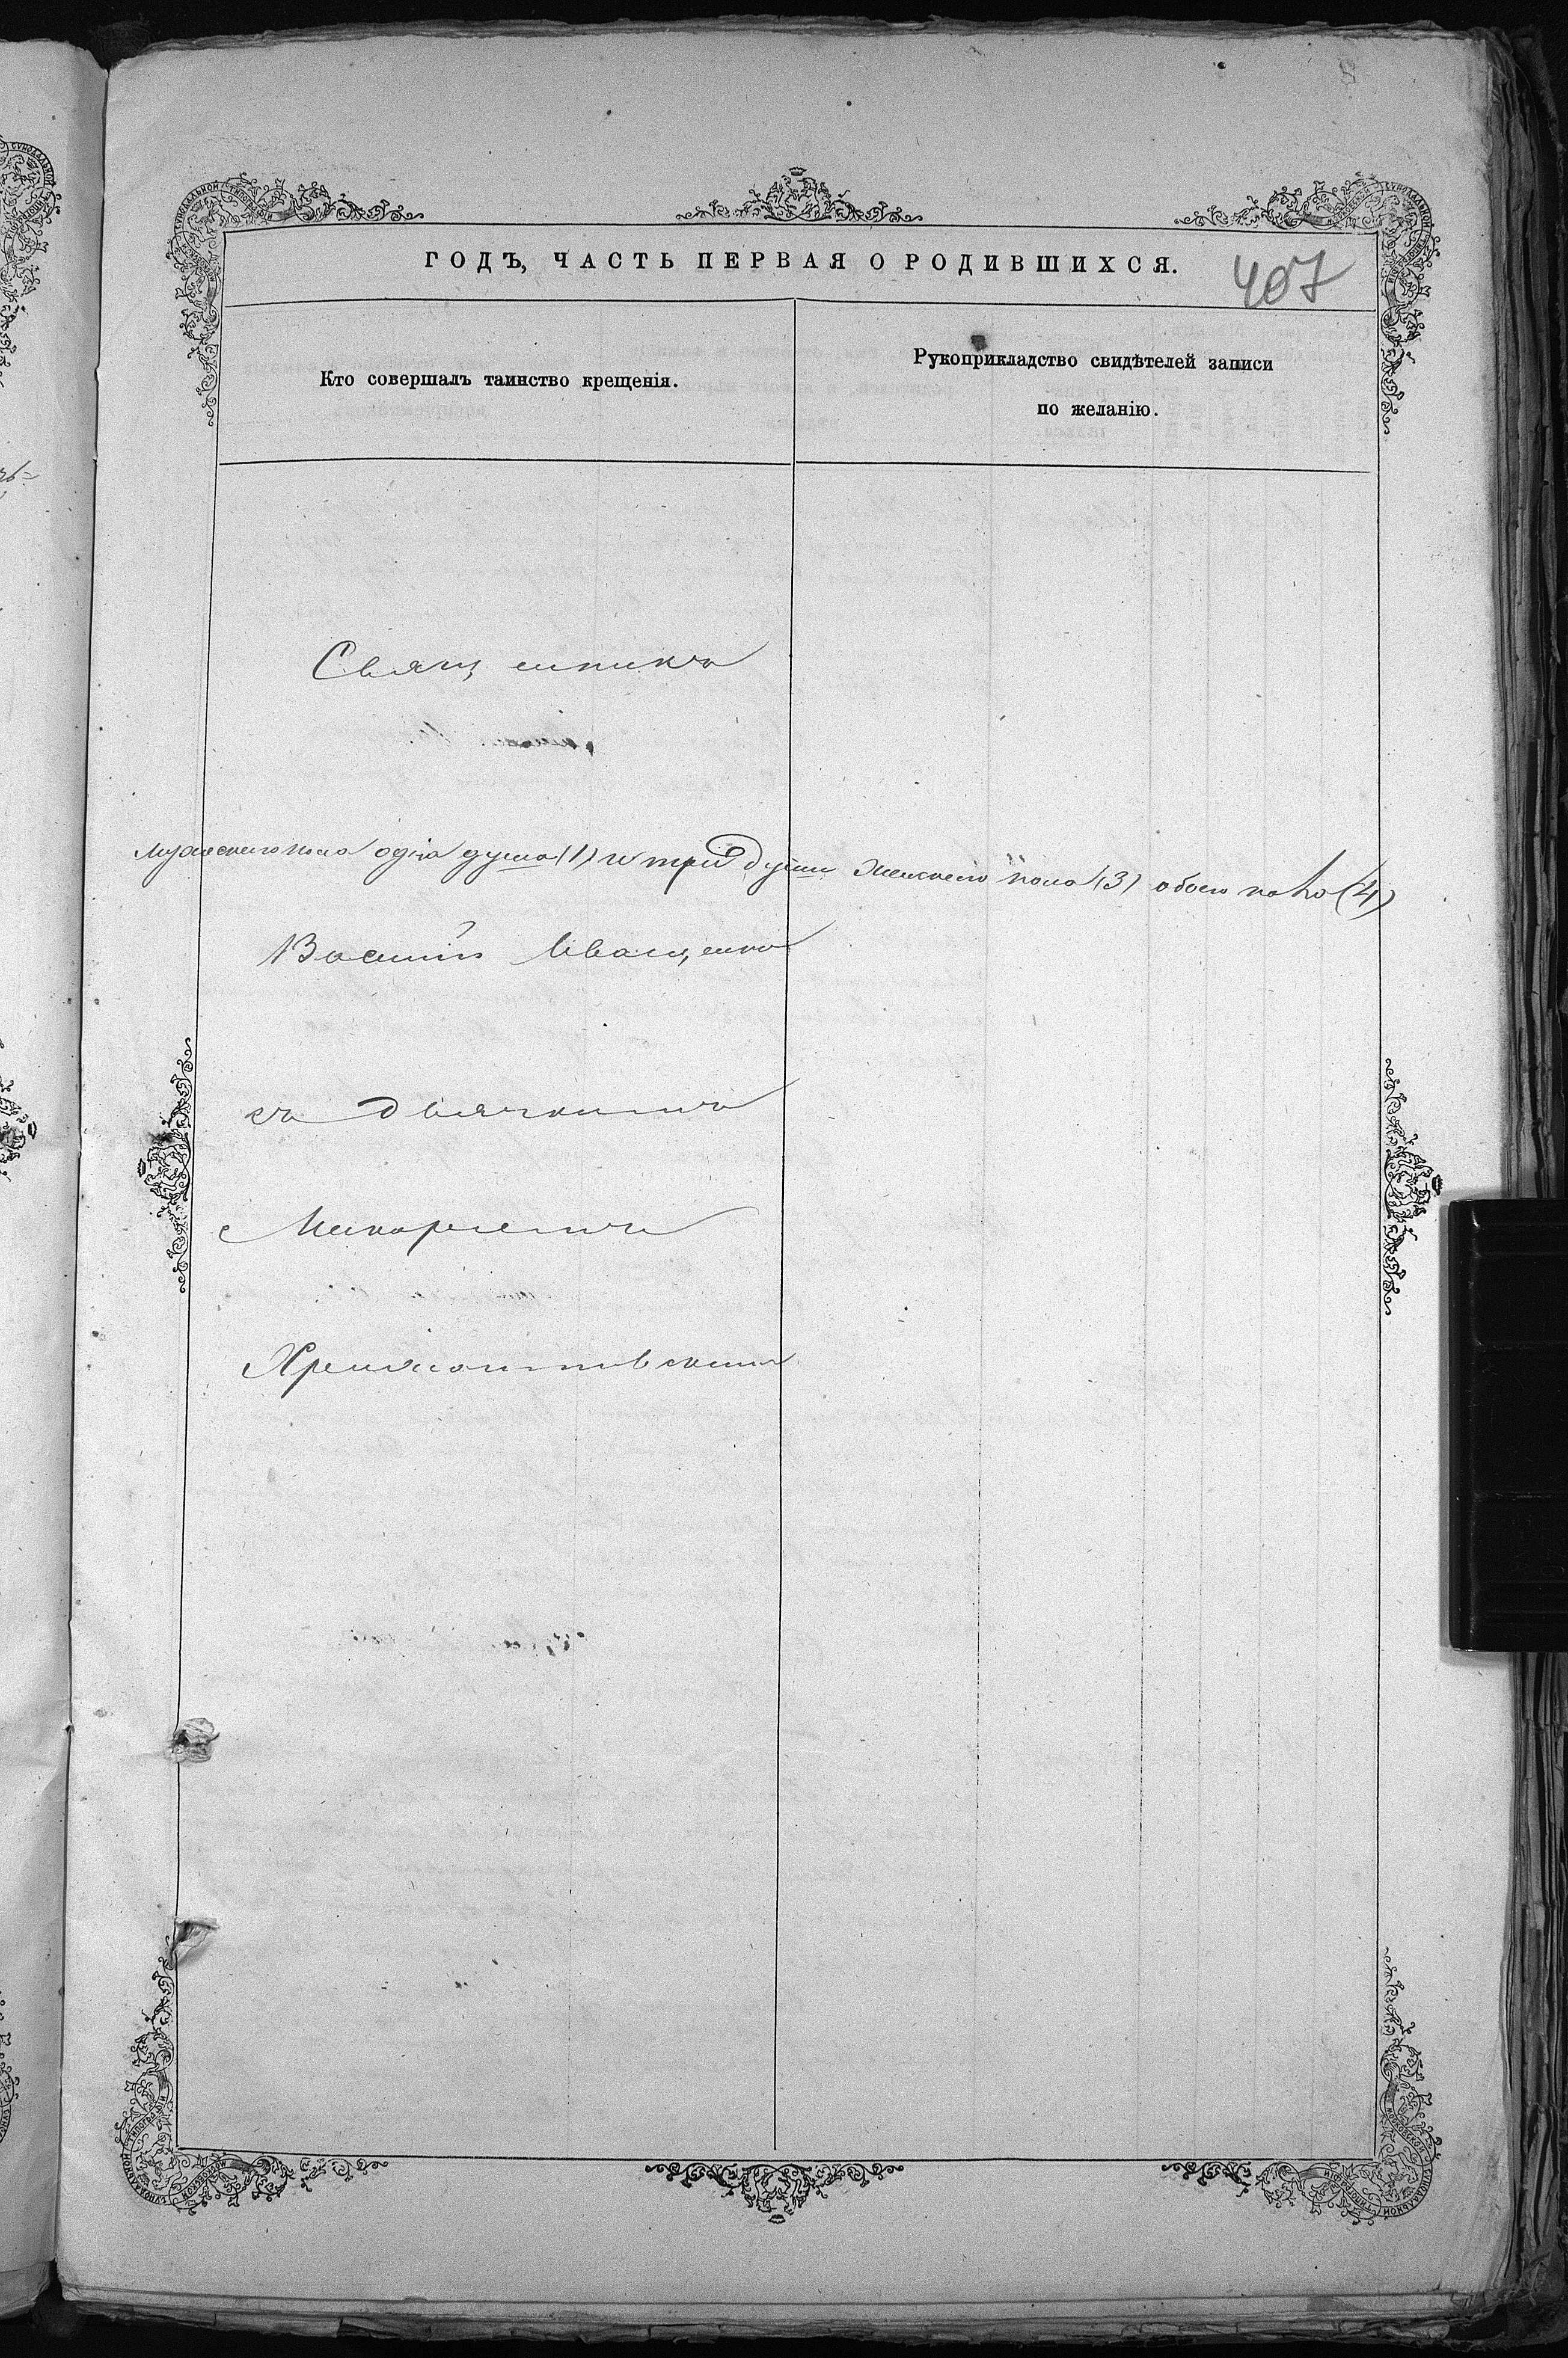 ГОДЪ, ЧАСТЬ ПЕРВАЯ О РОДИВШИХСЯ.
407
Кто совершалъ таинство крещенія.
Рукоприкладство свидѣтелей записи
по желанію.
Священникъ
Мужескаго пола одна душа (1) и три души женскаго пола (3) обоего пола (4)
Василій Иващенко
съ дьячкомъ